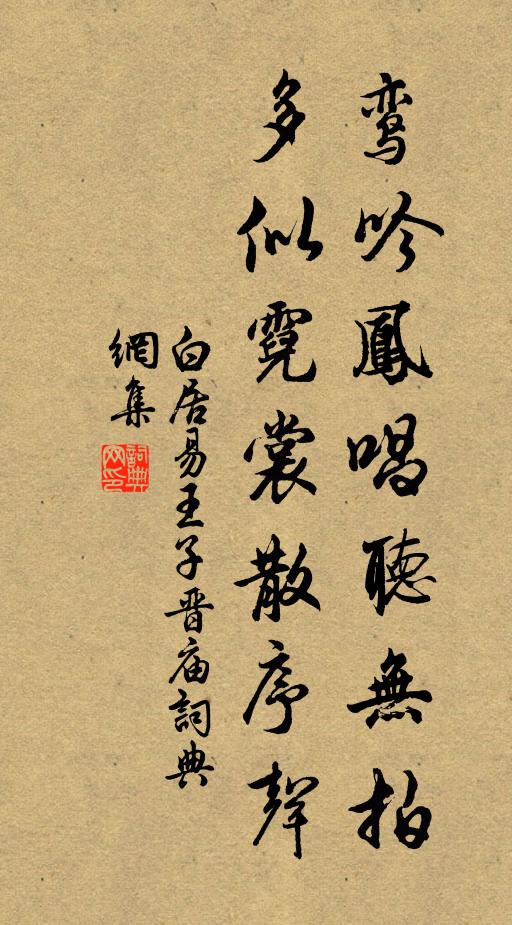 鸾吟鳳唱聽無拍
多似霓裳散序聲
白居易王子晋庙詞典
網集
詞典網印